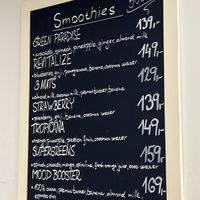 Smoothies
GREEN PARADISE 139,-
avocado, spinach, pineapple, ginger, almond milk
REVITALIZE 149,-
blueberries, goji, banana, coconut water
3 NUTS 129,-
almond milk, coconut, peanut butter, banana
STRAWBERRY 139,-
strawberry, banana, coconut water
TROPICANA 149,-
mango, pineapple, passion fruit, coconut water
SUPERGREENS 159,-
spinach, mango, spirulina, fresh orange juice, coco water
MOOD BOOSTER 169,-
100% cocoa, peanut butter, banana, almond milk,